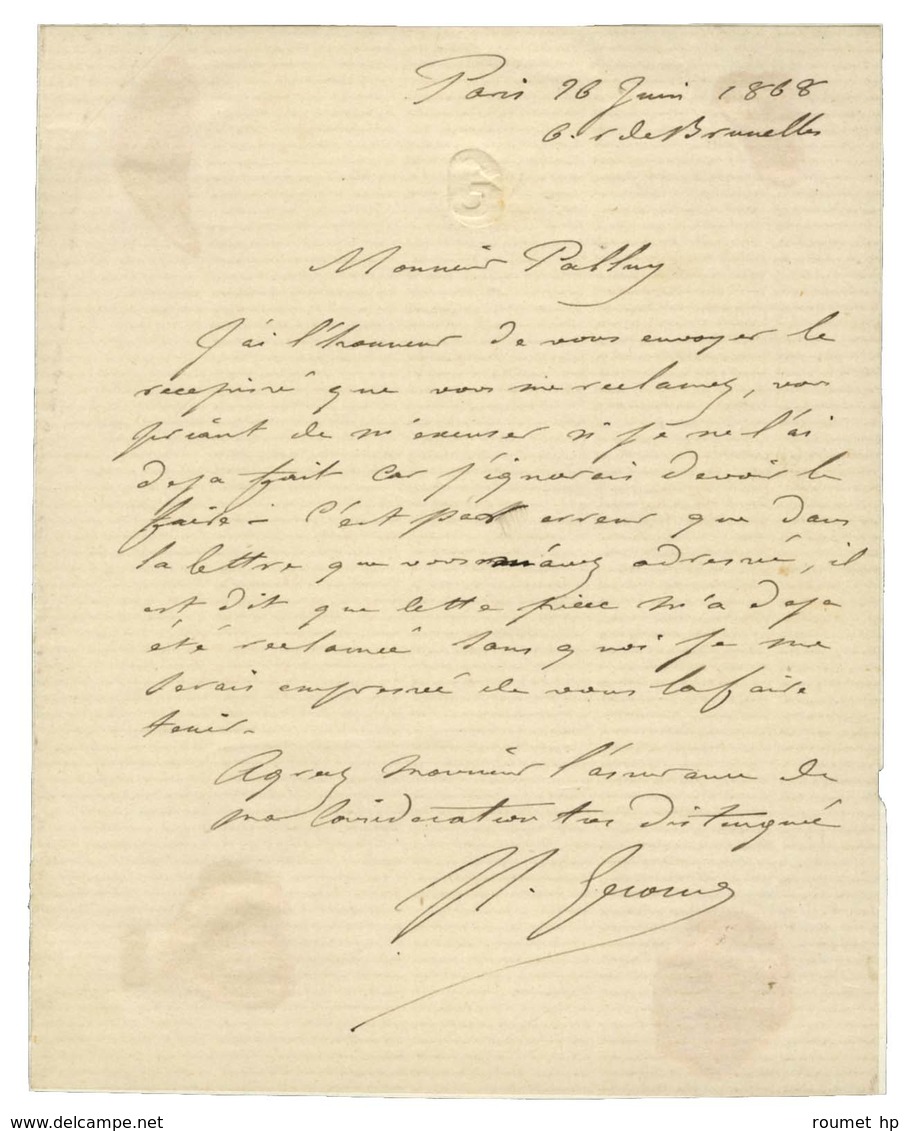 Paris 26 Juin 1868
6. r de Bruxelles
Monsieur Palluy
J'ai l'honneur de vous envoyer le
recepissé que vous me reclamez, vous
priant de m'excuser si je ne l'ai
deja fait car j'ignorais devoir le
faire - C'est par erreur que dans
la lettre que vous m'avez adressée, il
est dit que cette pièce m'a deja
été reclamée sans quoi je me
serais empressé de vous la faire
tenir -
Agreez monsieur l'assurance de
ma consideration tres distinguée
Gerome
delcampe.net
roumet hp